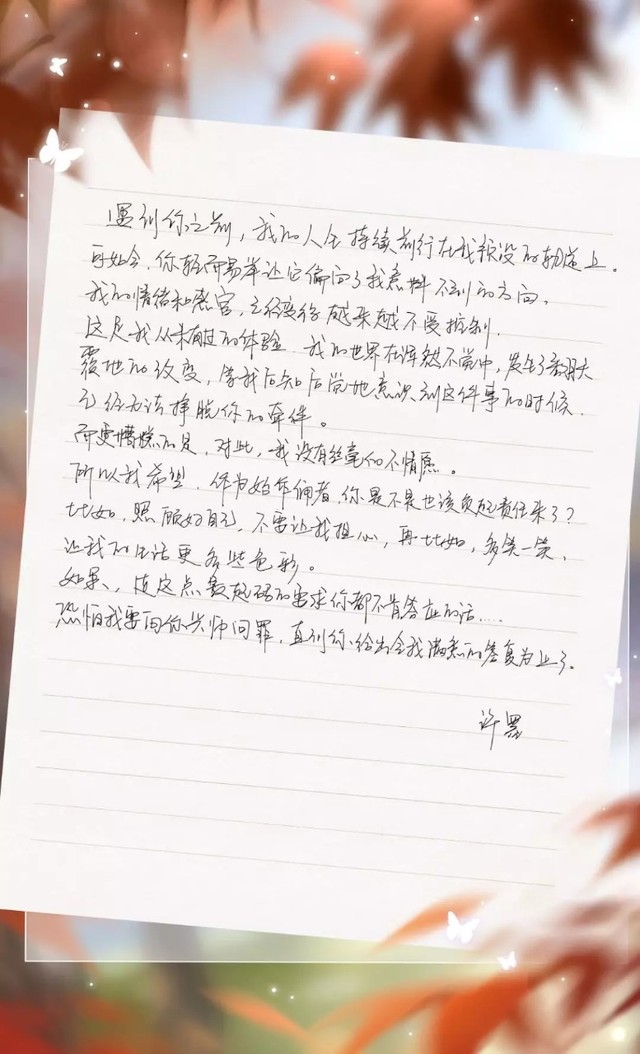 遇到你之前，我的人生持续前行在我预设的轨道上。
可如今，你轻而易举让它偏向了我意料不到的方向，
我的情绪和感官，已经变得越来越不受控制，
这是我从未有过的体验，我的世界在浑然不觉中，发生了翻天
覆地的改变，等我后知后觉地意识到这件事的时候，
已经无法挣脱你的牵绊。
而更糟糕的是，对此，我没有丝毫的不情愿。
所以我希望，作为始作俑者，你是不是也该负起责任来了？
比如，照顾好自己，不要让我担心，再比如，多笑一笑，
让我的生活更多些色彩。
如果，连这点最起码的要求你都不肯答应的话……
恐怕我要向你兴师问罪，直到你给出令我满意的答复为止了。
许墨